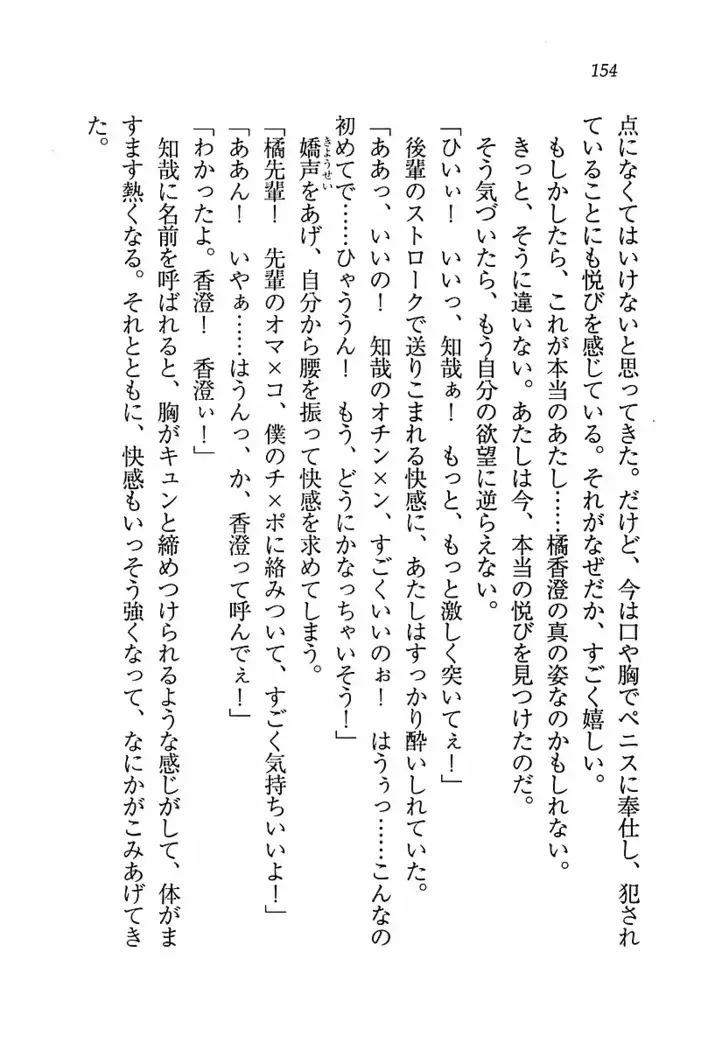 154
点になくてはいけないと思ってきた。だけど、今は口や胸でペニスに奉仕し、犯され
ていることにも悦びを感じている。それがなぜだか、すごく嬉しい。
もしかしたら、これが本当のあたし……橘香澄の真の姿なのかもしれない。
きっと、そうに違いない。あたしは今、本当の悦びを見つけたのだ。
そう気づいたら、もう自分の欲望に逆らえない。
「ひいぃ！　いいっ、知哉ぁ！　もっと、もっと激しく突いてぇ！」
後輩のストロークで送りこまれる快感に、あたしはすっかり酔いしれていた。
「ああっ、いいの！　知哉のオチン×ン、すごくいいのぉ！　はうぅっ……こんなの
初めてで……ひゃううん！　もう、どうにかなっちゃいそう！」
嬌声をあげ、自分から腰を振って快感を求めてしまう。
きょうせい
「橘先輩！　先輩のオマ×コ、僕のチ×ポに絡みついて、すごく気持ちいいよ！」
「ああん！　いやぁ……はうんっ、か、香澄って呼んでぇ！」
「わかったよ。香澄！　香澄ぃ！」
知哉に名前を呼ばれると、胸がキュンと締めつけられるような感じがして、体がま
すます熱くなる。それとともに、快感もいっそう強くなって、なにかがこみあげてき
た。